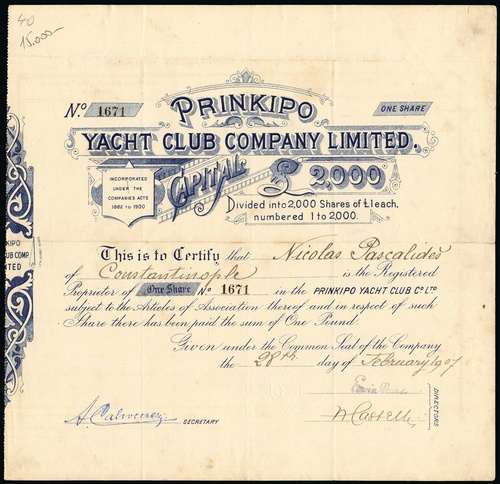 40
15.000-
PRINKIPO
No. 1671
ONE SHARE
YACHT CLUB COMPANY LIMITED.
INCORPORATED
UNDER THE
COMPANIES ACTS
1862 TO 1900
CAPITAL £2,000
Divided into 2,000 Shares of £1 each,
numbered 1 to 2,000.
This is to Certify that Nicolas Pascalidès
of Constantinople is the Registered
Proprietor of One Share No. 1671 in the PRINKIPO YACHT CLUB Co. LTD
subject to the Articles of Association thereof and in respect of such
Share there has been paid the sum of One Pound.
Given under the Common Seal of the Company
the 28th day of February 1907
Edwin
DIRECTORS
SECRETARY
NKIPO
CLUB COMP.
ITED